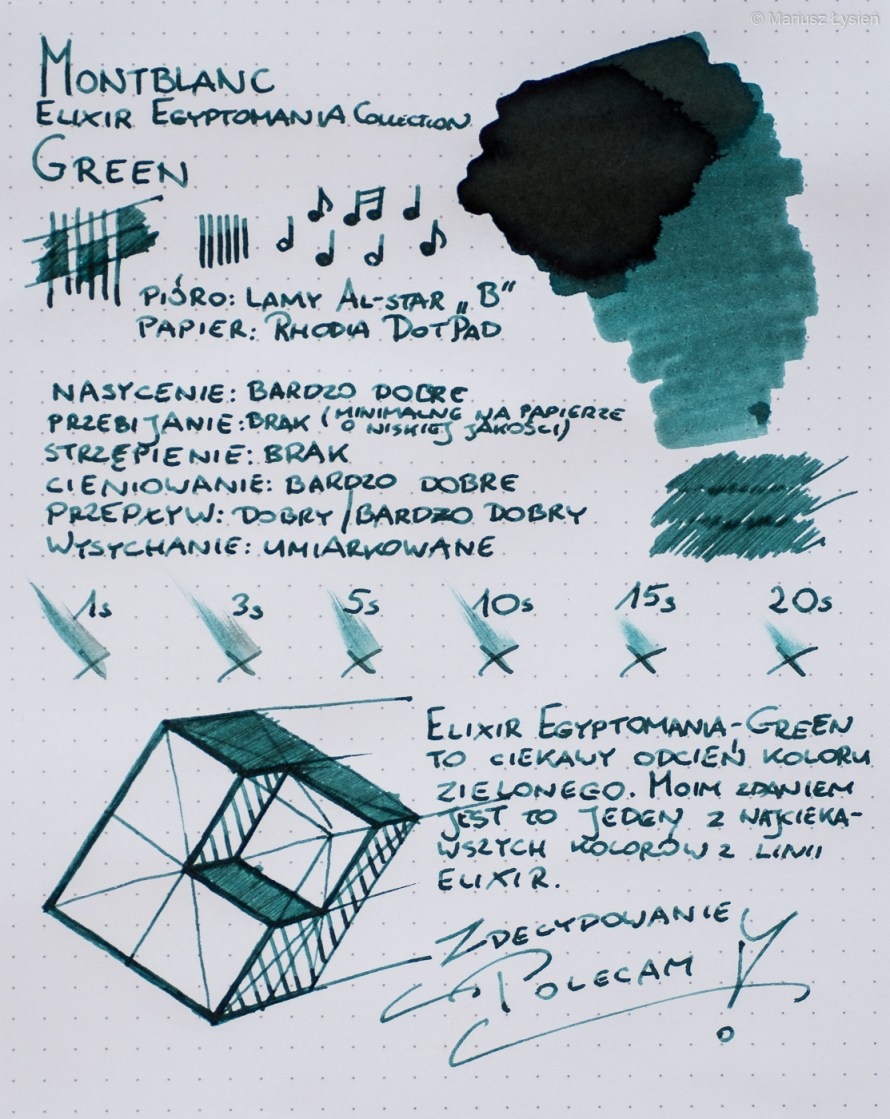 © Mariusz Łysień
MONTBLANC
ELIXIR EGYPTOMANIA COLLECTION
GREEN
PIÓRO: LAMY AL-STAR „B"
PAPIER: RHODIA DOTPAD
NASYCENIE: BARDZO DOBRE
PRZEBIJANIE: BRAK (MINIMALNE NA PAPIERZE
O NISKIEJ JAKOŚCI)
STRZĘPIENIE: BRAK
CIENIOWANIE: BARDZO DOBRE
PRZEPŁYW: DOBRY/BARDZO DOBRY
WYSYCHANIE: UMIARKOWANE
1s 3s 5s 10s 15s 20s
ELIXIR EGYPTOMANIA-GREEN
TO CIEKAWY ODCIEŃ KOLORU
ZIELONEGO. MOIM ZDANIEM
JEST TO JEDEN Z NAJCIEKA-
WSZYCH KOLORÓW Z LINII
ELIXIR.
ZDECYDOWANIE
POLECAM!